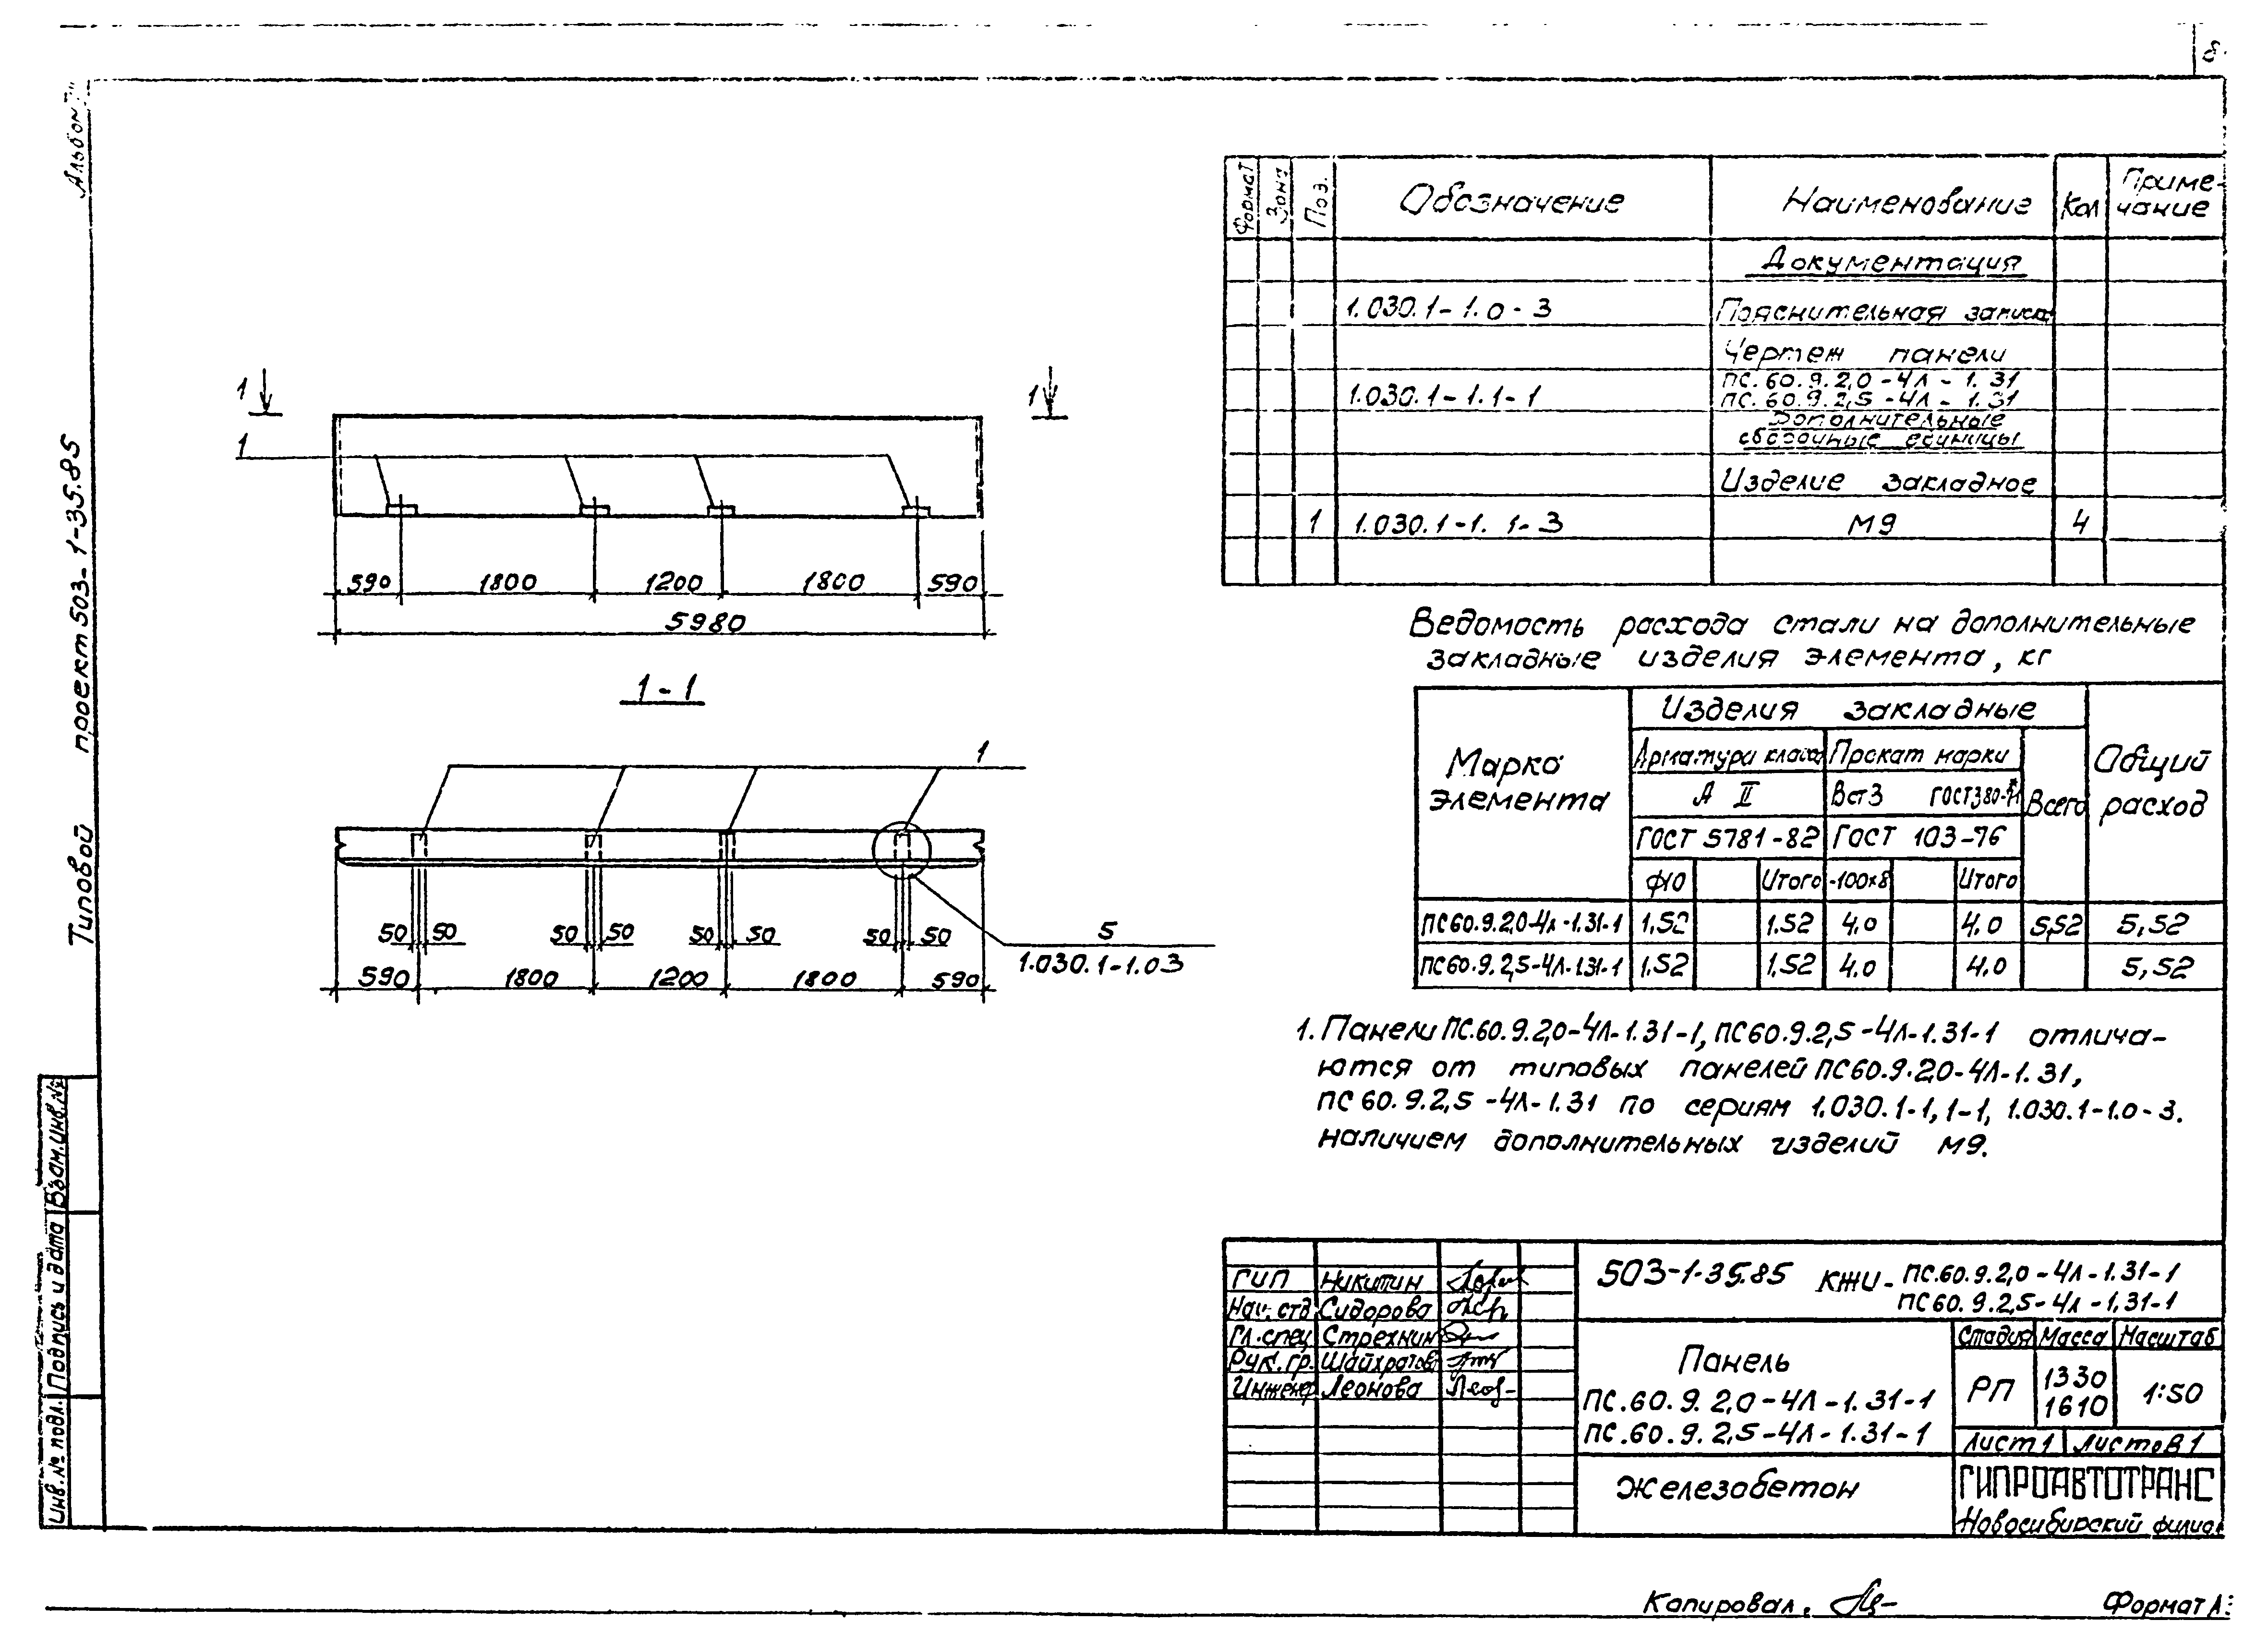 8
Альбом
Типовой проект 503-1-35.85
1 1
1
590 1800 1200 1800 590
5980
1-1
1
50 50 50 50 50 50 50 50
5
1.030.1-1.03
590 1800 1200 1800 590
Формат Зона Поз. Обозначение Наименование Кол Приме-
чание
Документация
1.030.1-1.0-3 Пояснительная записка
Чертеж панели
ПС.60.9.2,0-4Л-1.31
1.030.1-1.1-1 ПС.60.9.2,5-4Л-1.31
Дополнительные
сборочные единицы
Изделие закладное
1 1.030.1-1.1-3 М9 4
Ведомость расхода стали на дополнительные
закладные изделия элемента, кг
Марка
элемента
Изделия закладные
Общий
расход
Арматура класса Прокат марки
Всего
А II Вст3 ГОСТ380-71*
ГОСТ 5781-82 ГОСТ 103-76
ф10 Итого -100х8 Итого
ПС60.9.2,0-4Л-1.31-1 1,52 1,52 4,0 4,0 5,52 5,52
ПС60.9.2,5-4Л-1.31-1 1,52 1,52 4,0 4,0 5,52
1. Панели ПС.60.9.2,0-4Л-1.31-1, ПС60.9.2,5-4Л-1.31-1 отлича-
ются от типовых панелей ПС60.9.2,0-4Л-1.31,
ПС 60.9.2,5-4Л-1.31 по сериям 1.030.1-1, 1-1, 1.030.1-1.0-3.
наличием дополнительных изделий М9.
ГИП Никитин
Нач. отд Сидорова
Гл. спец Стрехнин
Рук. гр. Шайхратова
Инженер Леонова
503-1-35.85 КЖИ-ПС.60.9.2,0-4Л-1.31-1
ПС60.9.2,5-4Л-1.31-1
Панель
ПС.60.9.2,0-4Л-1.31-1
ПС.60.9.2,5-4Л-1.31-1
Стадия Масса Масштаб
РП 1330
1610 1:50
Лист 1 Листов 1
Железобетон
ГИПРОАВТОТРАНС
Новосибирский филиал
Инв. № подл. Подпись и дата Взам. инв. №
Копировал. Формат А3